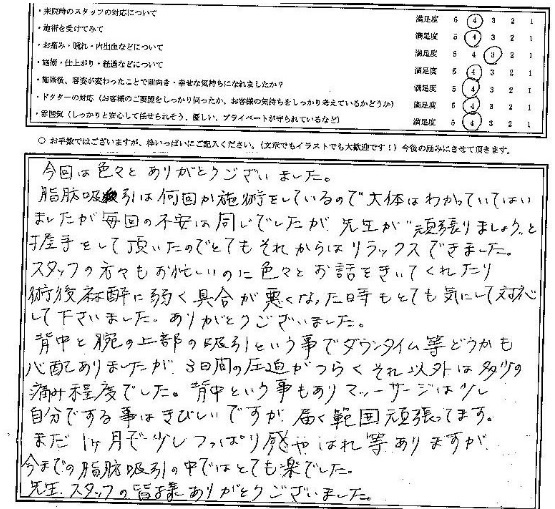 ・来院時のスタッフの対応について 満足度 5 4 3 2 1
・施術を受けてみて 満足度 5 4 3 2 1
・お痛み・腫れ・内出血などについて 満足度 5 4 3 2 1
・施術・仕上がり・経過などについて 満足度 5 4 3 2 1
・施術後、容姿が変わったことで前向き・幸せな気持ちになれましたか？ 満足度 5 4 3 2 1
・ドクターの対応(お客様のご要望をしっかり伺ったか、お客様の気持ちをしっかり考えているかどうか) 満足度 5 4 3 2 1
・雰囲気(しっかりと安心して任せられそう、優しい、プライベートが守られているなど) 満足度 5 4 3 2 1
○ お手数ではございますが、枠いっぱいにご記入ください。(文章でもイラストでも大歓迎です！) 今後の励みにさせて頂きます。
今回は色々とありがとうございました。
脂肪吸引は何回か施術をしているので大体はわかっていてはい
ましたが毎回の不安は同じでしたが、先生が"頑張りましょう"と
握手をして頂いたのでとてもそれからはリラックスできました。
スタッフの方々もお忙しいのに色々とお話をきいてくれたり
術後麻酔に弱く具合が悪くなった時もとても気にして対応
して下さいました。ありがとうございました。
背中と腕の上部の吸引という事でダウンタイム等どうかも
心配ありましたが、3日間の圧迫がつらくそれ以外は多少の
痛み程度でした。背中という事もありマッサージは少し
自分でする事はきびしいですが、届く範囲頑張ってます。
まだ1ヶ月で少しつっぱり感やはれ等ありますが、
今までの脂肪吸引の中ではとても楽でした。
先生、スタッフの皆様ありがとうございました。